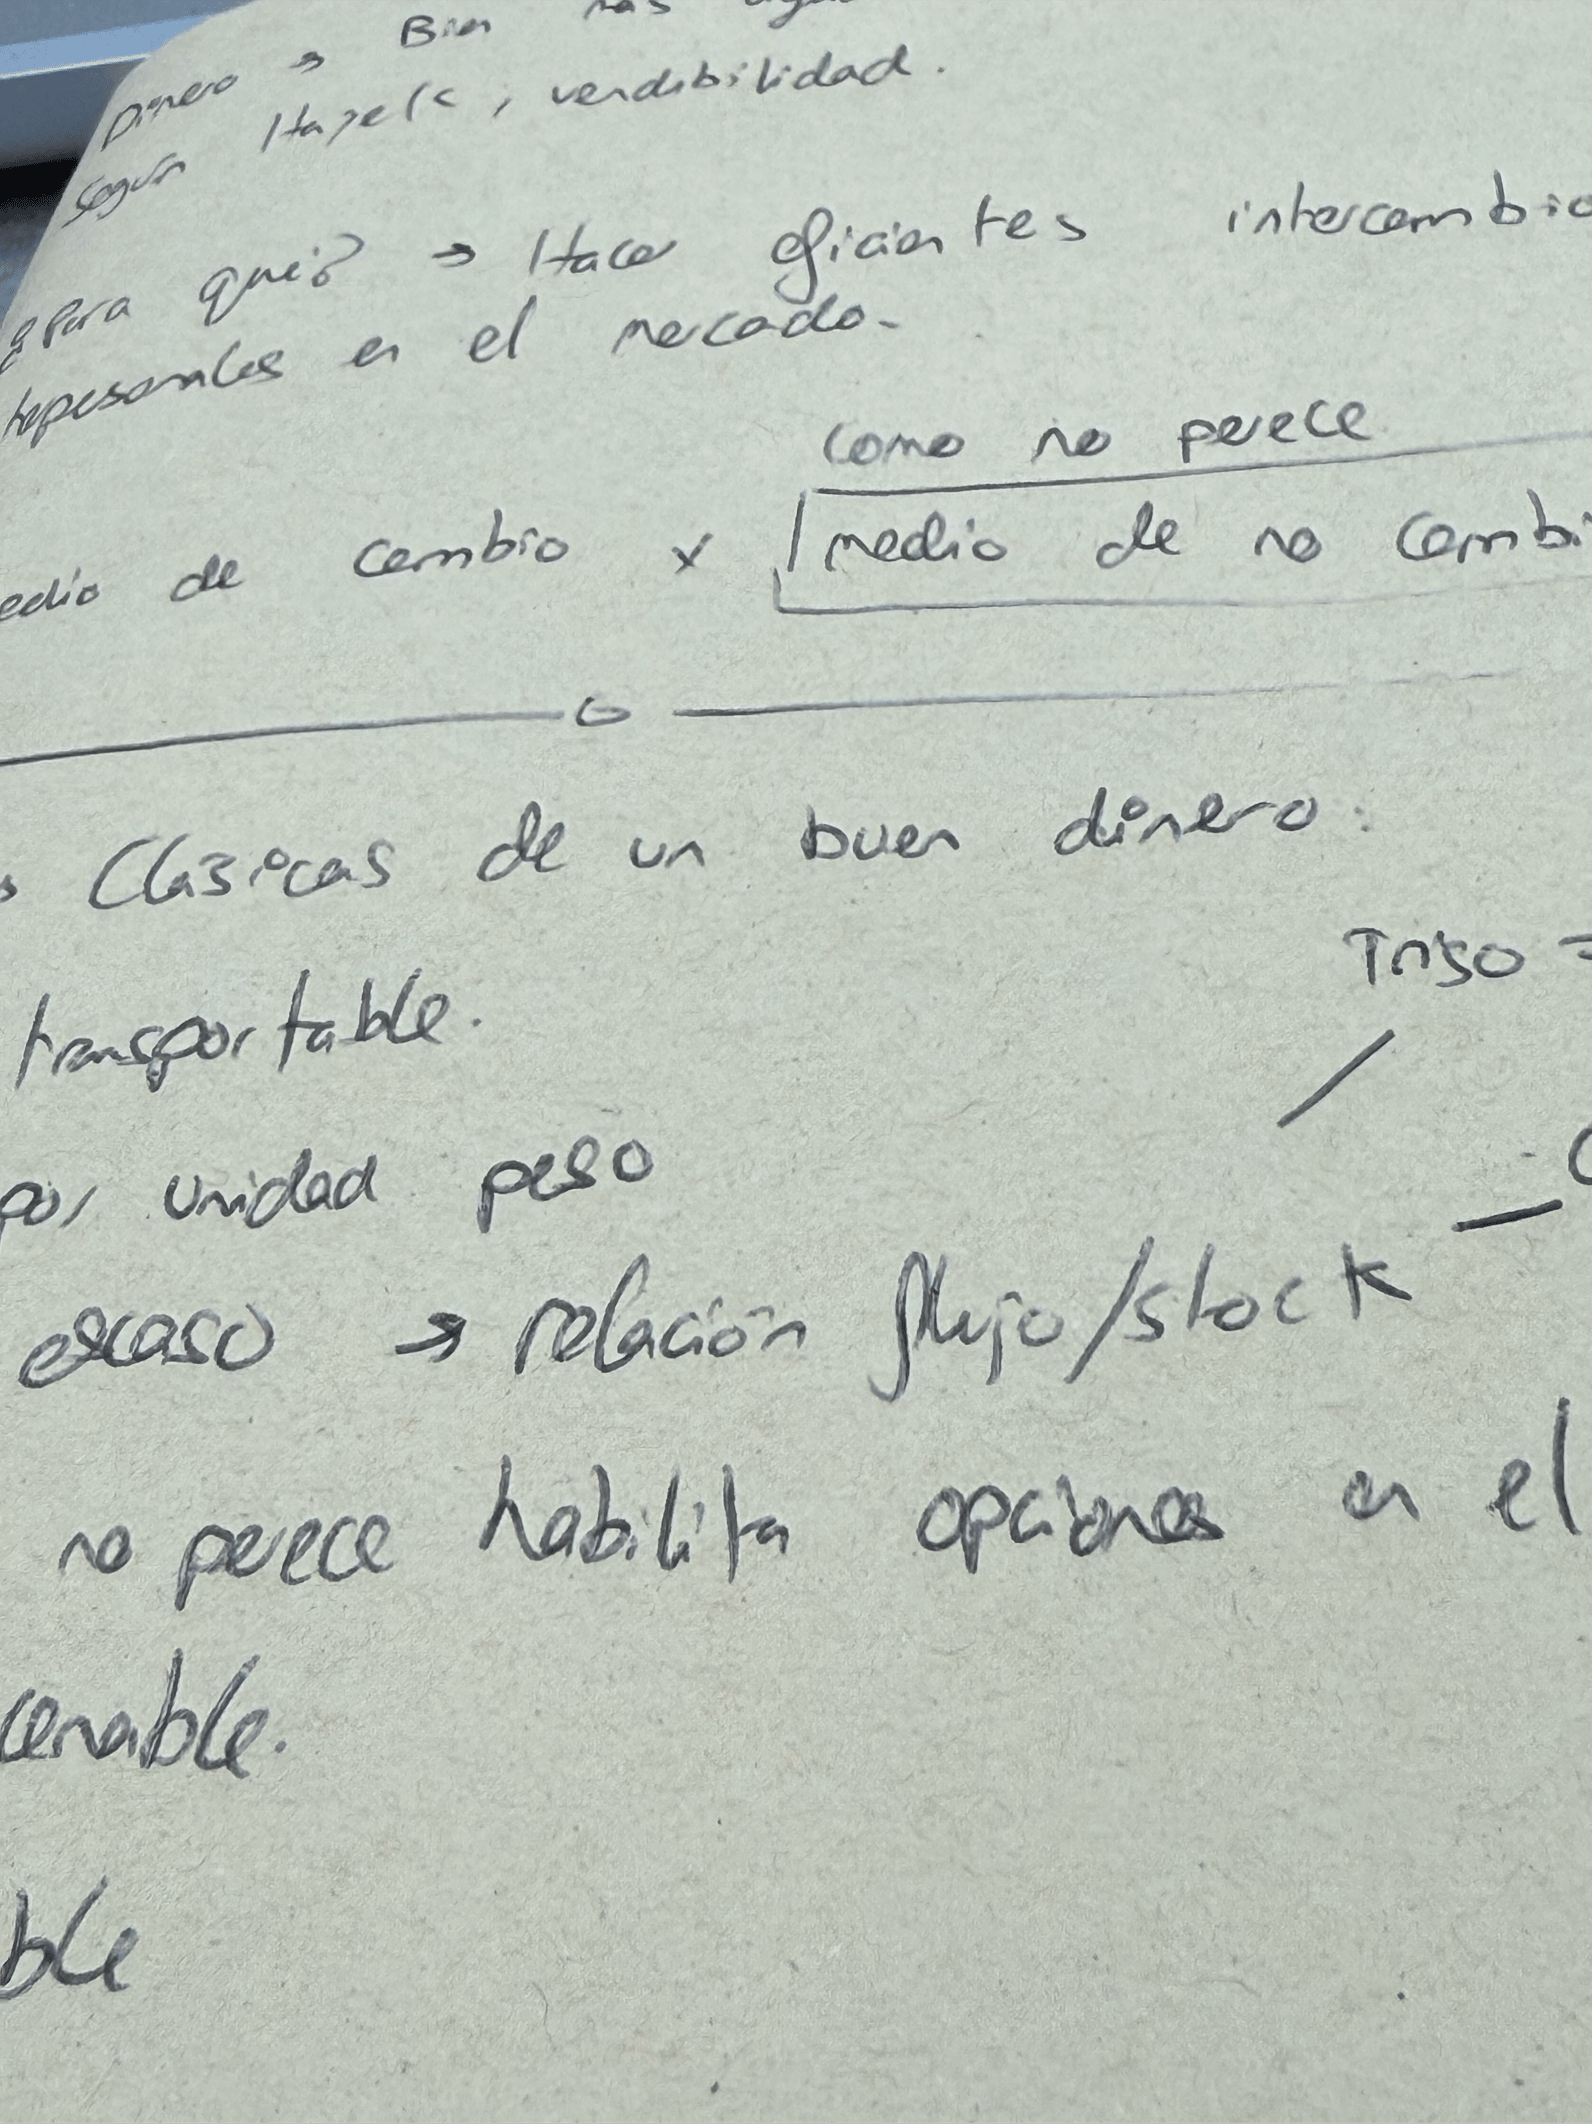 Dinero → Bien más
según Hayek, vendibilidad.
¿Para qué? → Hacer eficientes intercambio
en el mercado.
como no perece
edio de cambio x medio de no cambi
s Clásicas de un buen dinero:
Trigo =
transportable.
por unidad peso
escaso → relación flujo/stock
no perece habilita opciones en el
cenable.
ble